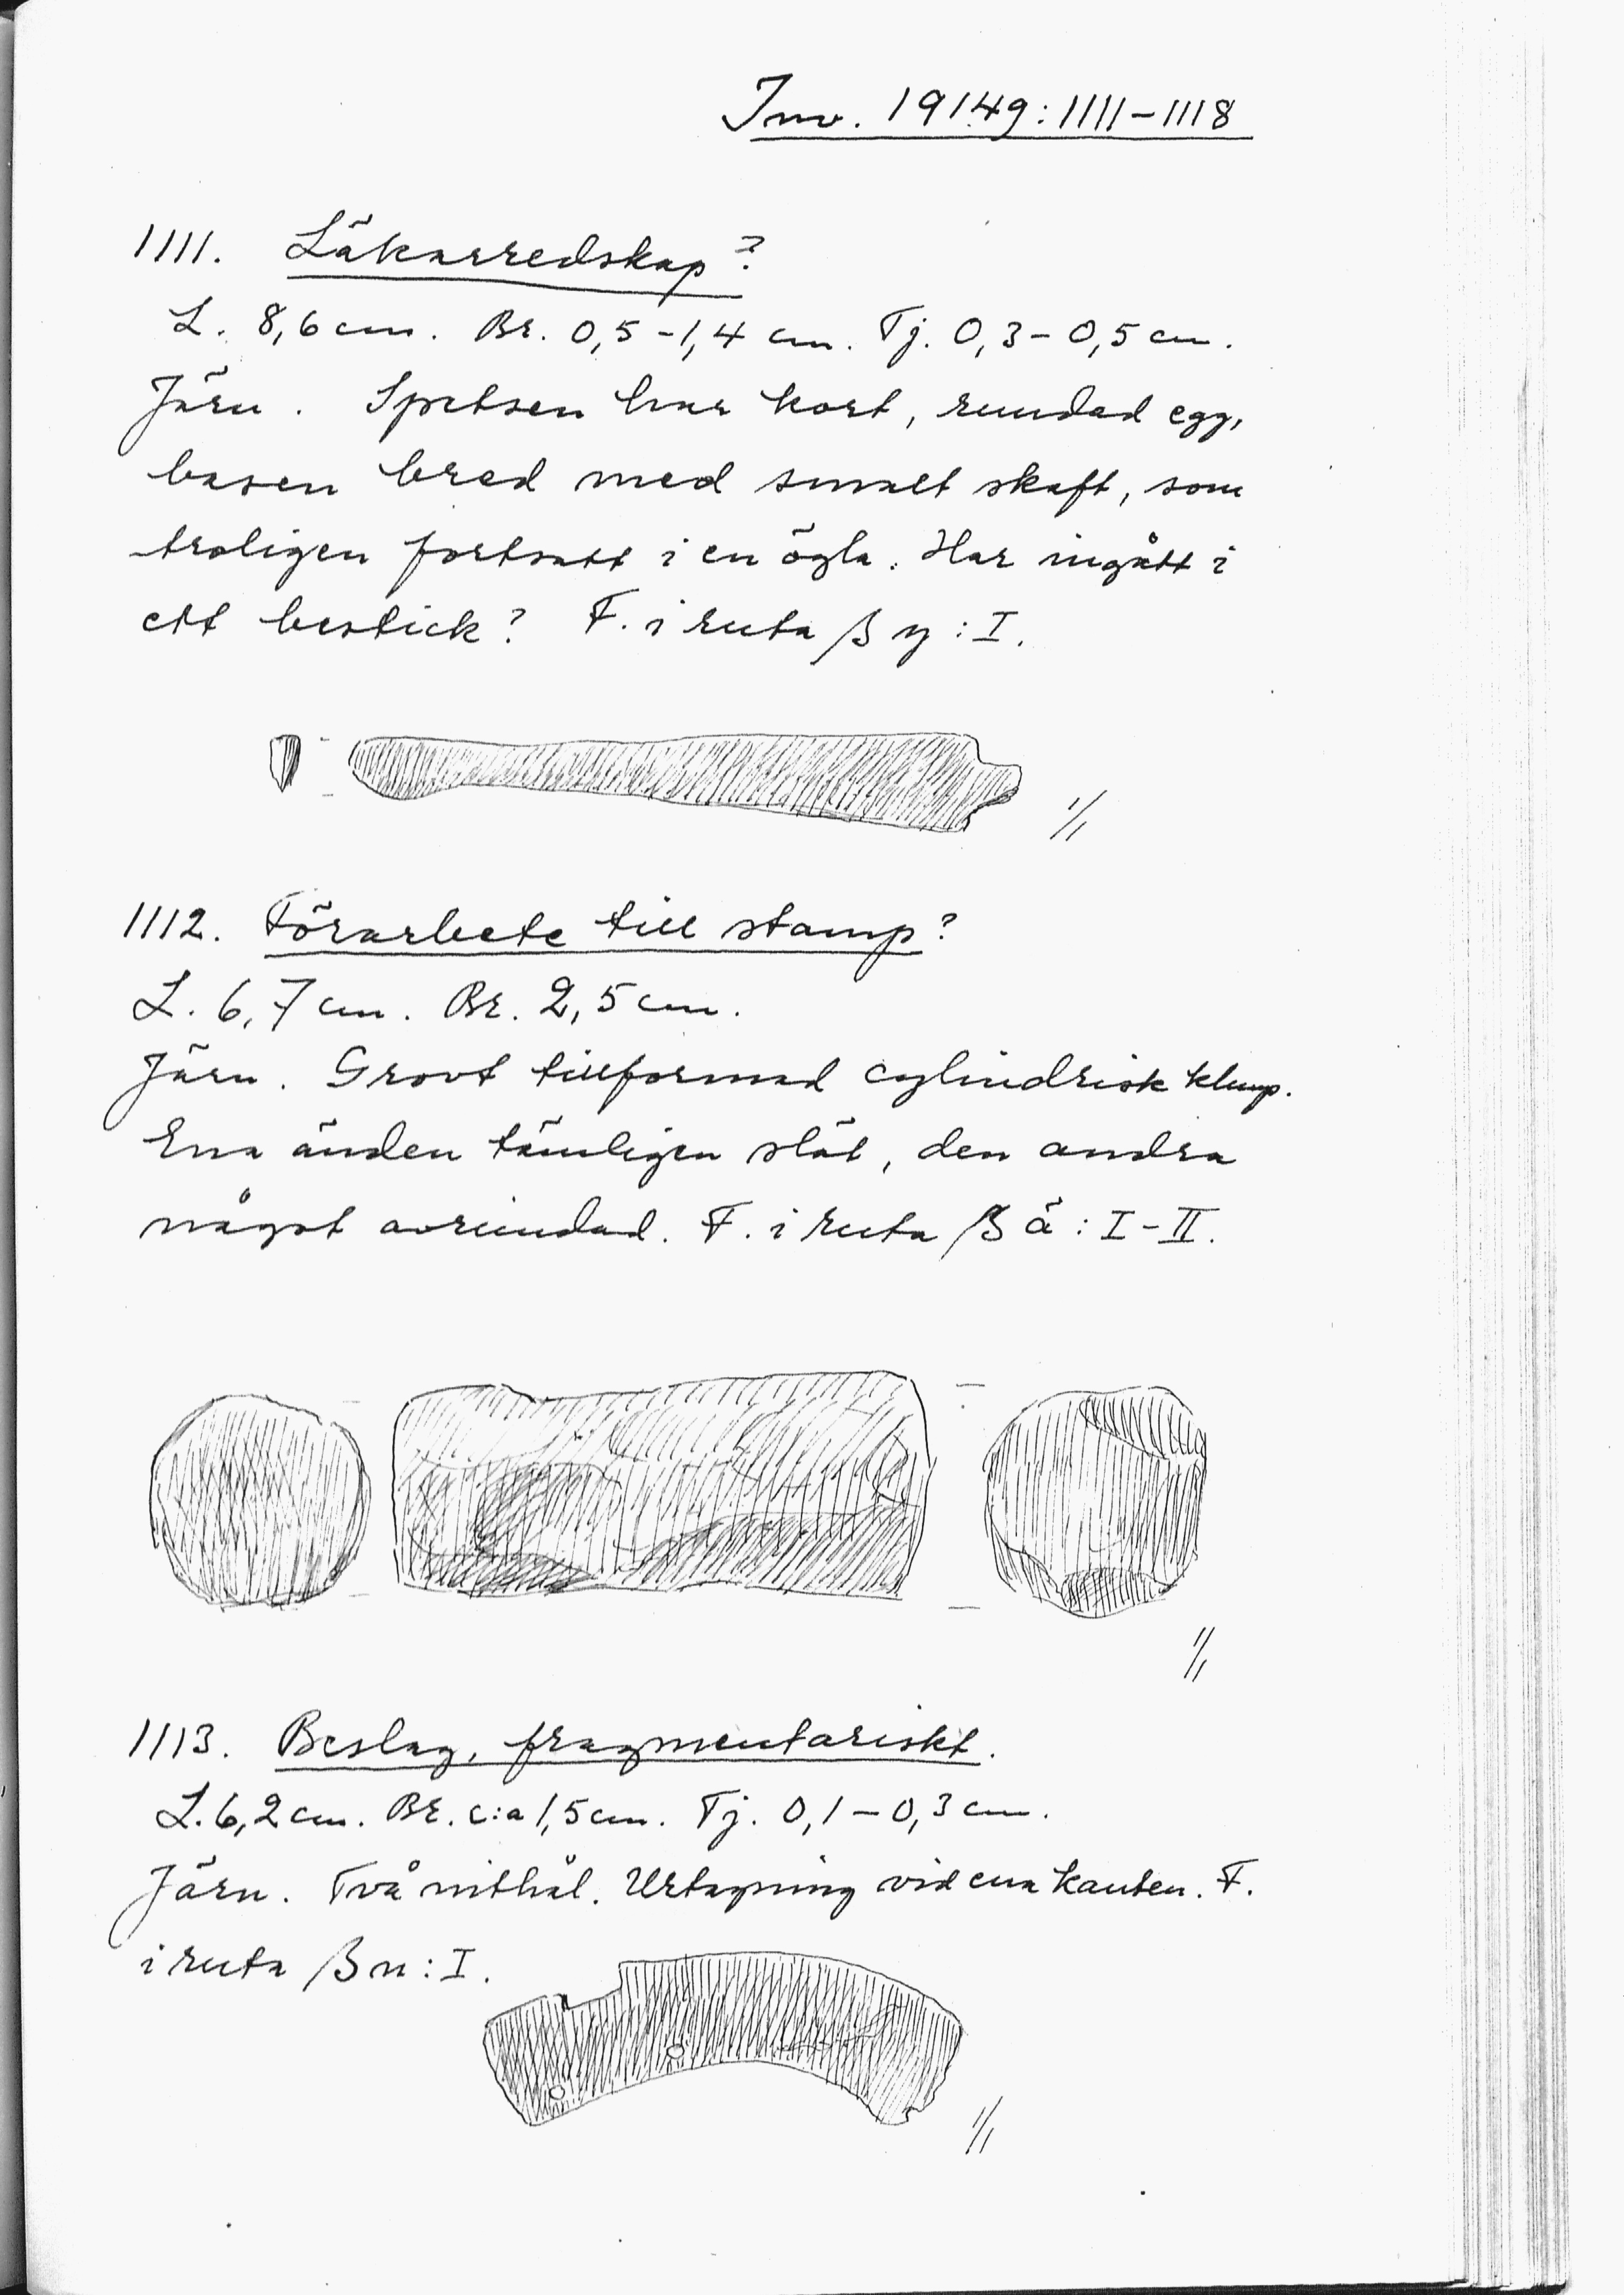 Inv. 19149:1111-1118
1111. Läkarredskap?
L. 8,6 cm. Br. 0,5-1,4 cm. Tj. 0,3-0,5 cm.
Järn. Spetsen har kort, rundad egg,
basen bred med smalt skaft, som
troligen fortsatt i en ögla. Har ingått i
ett bestick? F. i ruta β y:I.
1/1
1112. Förarbete till stamp?
L. 6,7 cm. Br. 2,5 cm.
Järn. Grovt tillformad cylindrisk klump.
Ena änden tämligen slät, den andra
något avrundad. F. i ruta β ä:I-II.
1/1
1113. Beslag, fragmentariskt.
L. 6,2 cm. Br. c:a 1,5 cm. Tj. 0,1-0,3 cm.
Järn. Två nithål. Urtagning vid ena kanten. F.
i ruta β n:I.
1/1